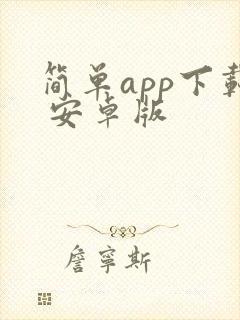 简单app下载
安卓版
詹宁斯